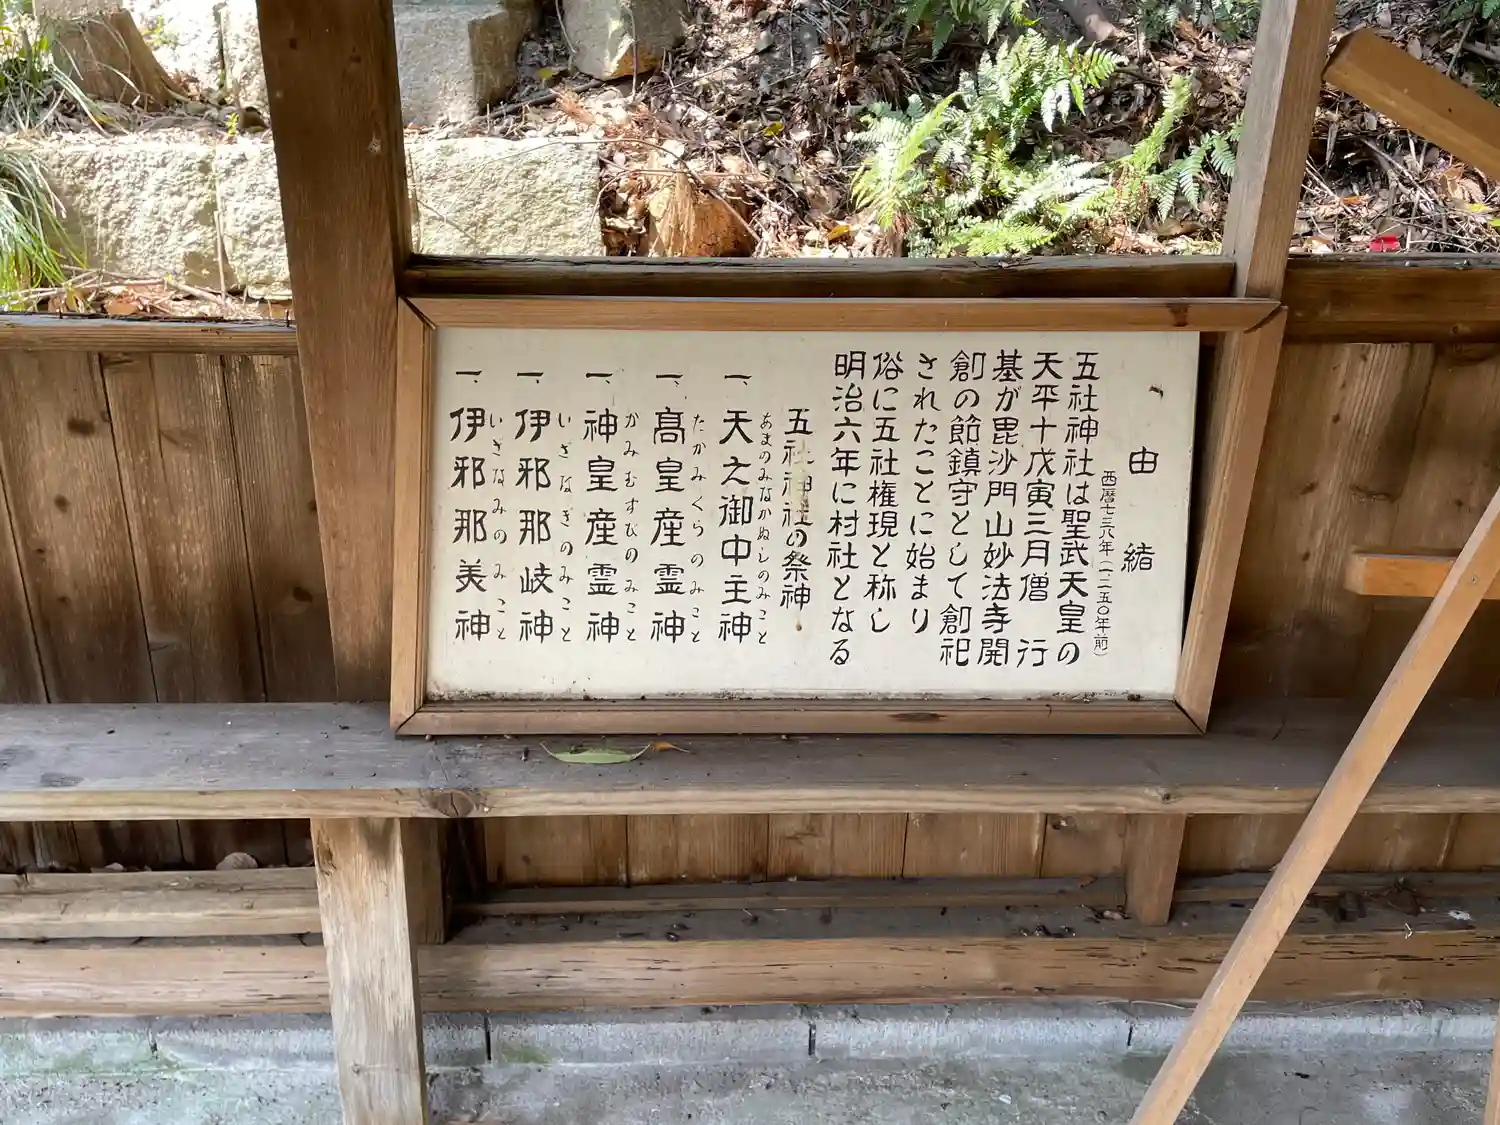 一、由緒
五社神社は聖武天皇の
西暦七三八年(一、二五〇年前)
天平十戊寅三月僧 行
基が毘沙門山妙法寺開
創の節鎮守として創祀
されたことに始まり
俗に五社権現と称し
明治六年に村社となる
五社神社の祭神
あまのみなかぬしのみこと
一、天之御中主神
たかみくらのみこと
一、高皇産霊神
かみむすびのみこと
一、神皇産霊神
いざなぎのみこと
一、伊邪那岐神
いざなみのみこと
一、伊邪那美神